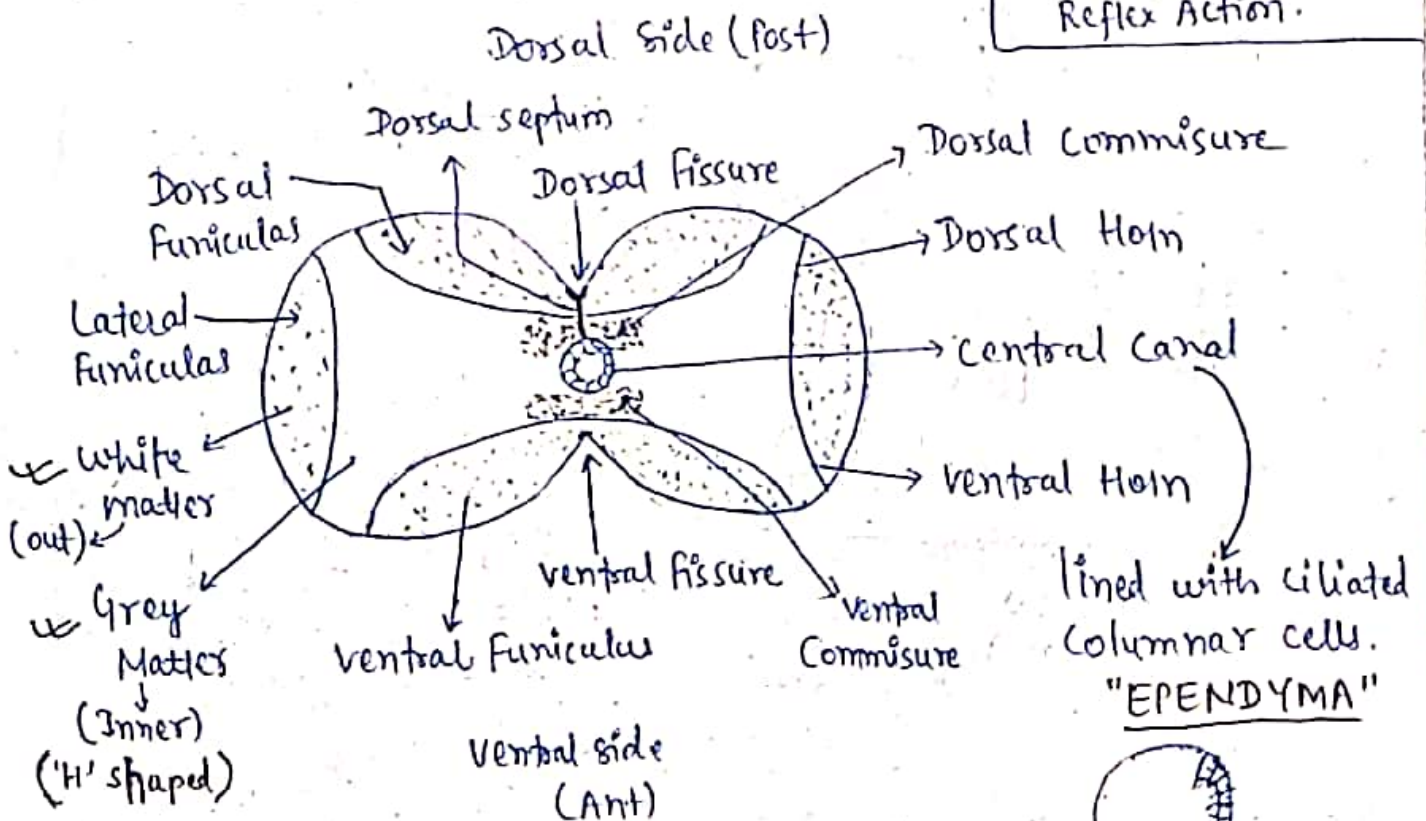 Reflex Action.
Dorsal Side (Post)
Dorsal septum
Dorsal Commisure
Dorsal
Funiculas
Dorsal Fissure
Dorsal Horn
Lateral
Funiculas
Central Canal
White
matter
(out)
Ventral Horn
Grey
Matter
(Inner)
('H' shaped)
Ventral fissure
Ventral Funiculus
Ventral
Commisure
lined with ciliated
Columnar cells.
"EPENDYMA"
Ventral side
(Ant)